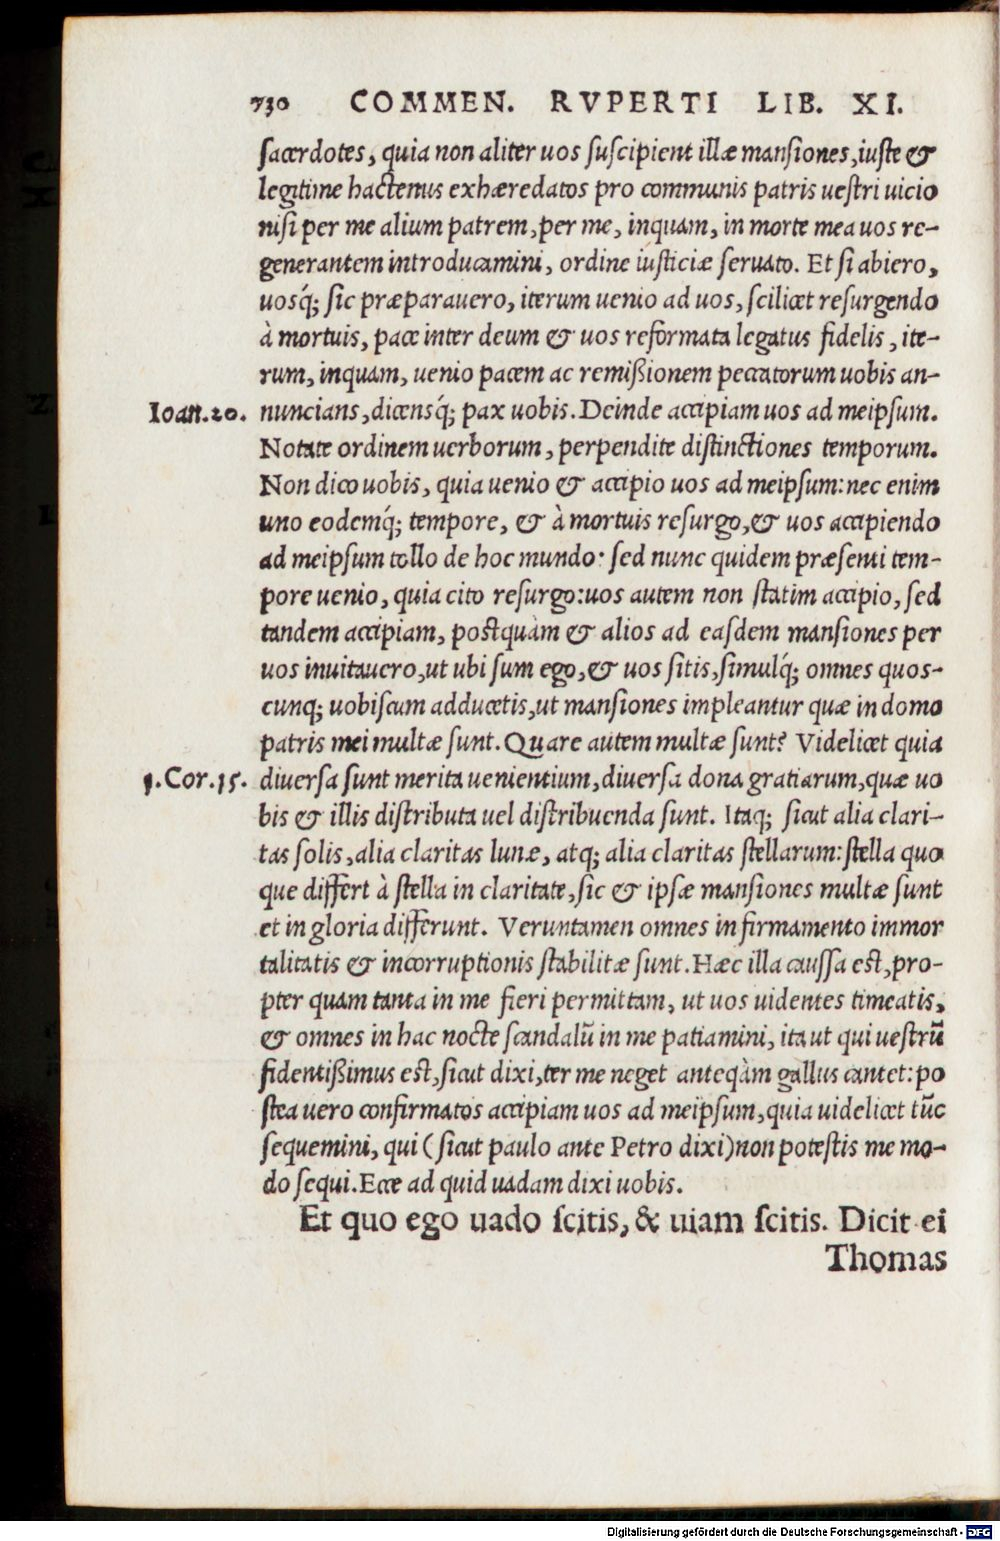 730 COMMEN. RVPERTI LIB. XI.
sacerdotes, quia non aliter uos suscipient illæ mansiones, iuste &
legitime hactenus exhæredatos pro communis patris uestri uicio
nisi per me alium patrem, per me, inquam, in morte mea uos re-
generantem introducamini, ordine iusticiæ seruato. Et si abiero,
uosq́; sic præparauero, iterum uenio ad uos, scilicet resurgendo
à mortuis, pace inter deum & uos reformata legatus fidelis, ite-
rum, inquam, uenio pacem ac remißionem peccatorum uobis an-
Ioan.20. nuncians, dicensq́; pax uobis. Deinde accipiam uos ad meipsum.
Notate ordinem uerborum, perpendite distinctiones temporum.
Non dico uobis, quia uenio & accipio uos ad meipsum: nec enim
uno eodemq́; tempore, & à mortuis resurgo, & uos accipiendo
ad meipsum tollo de hoc mundo: sed nunc quidem præsenti tem-
pore uenio, quia cito resurgo: uos autem non statim accipio, sed
tandem accipiam, postquàm & alios ad easdem mansiones per
uos inuitauero, ut ubi sum ego, & uos sitis, simulq́; omnes quos-
cunq; uobiscum adducetis, ut mansiones impleantur quæ in domo
patris mei multæ sunt. Quare autem multæ sunt? Videlicet quia
1.Cor.15. diuersa sunt merita uenientium, diuersa dona gratiarum, quæ uo
bis & illis distributa uel distribuenda sunt. Itaq; sicut alia clari-
tas solis, alia claritas lunæ, atq; alia claritas stellarum: stella quo
que differt à stella in claritate, sic & ipsæ mansiones multæ sunt
et in gloria differunt. Veruntamen omnes in firmamento immor
talitatis & incorruptionis stabilitæ sunt. Hæc illa caussa est, pro-
pter quam tanta in me fieri permittam, ut uos uidentes timeatis,
& omnes in hac nocte scandalũ in me patiamini, ita ut qui uestrũ
fidentißimus est, sicut dixi, ter me neget anteq̀àm gallus cantet: po
stea uero confirmatos accipiam uos ad meipsum, quia uidelicet tũc
sequemini, qui (sicut paulo ante Petro dixi) non potestis me mo-
do sequi. Ecce ad quid uadam dixi uobis.
Et quo ego uado scitis, & uiam scitis. Dicit ei
Thomas
Digitalisierung gefördert durch die Deutsche Forschungsgemeinschaft - DFG